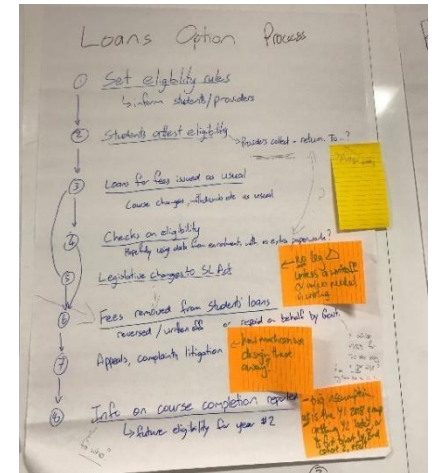 Loans Option Process
① Set eligibility rules
↳ inform students/providers
② Students attest eligibility
→ Providers collect - return. To...?
③ Loans for fees issued as usual
Course changes, withdrawals as usual
④ Checks on eligibility
Hopefully using data from enrolments with no extra paperwork?
⑤ Legislative changes to SL Act
← no leg Δ
unless a writeoff
⑥ Fees removed from students' loans
reversed / written off or repaid on behalf by Govt.
⑦ Appeals, complaints, litigation
← how much can we
design these
away?
⑧ Info on course completion reported
↳ future eligibility for year #2
- big assumption
is the Y1 2018 group
getting Y2 later, or